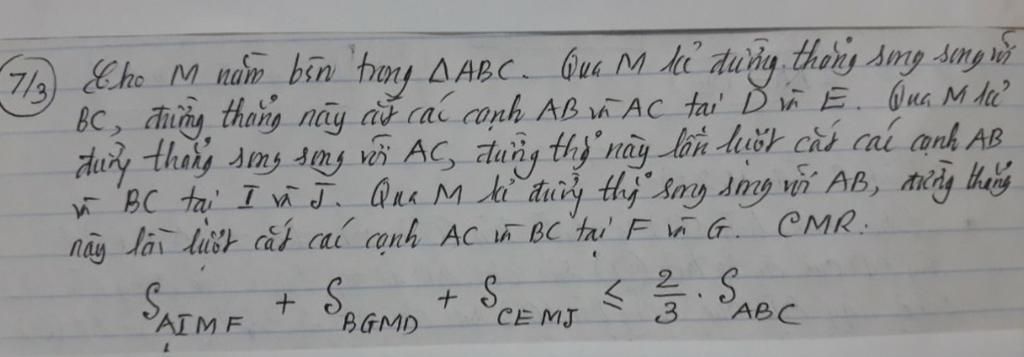 7/3 Cho M nằm bên trong ΔABC. Qua M kẻ đường thẳng song song với
BC, đường thẳng này cắt các cạnh AB và AC tại D và E. Qua M kẻ
đường thẳng song song với AC, đường thg này lần lượt cắt các cạnh AB
và BC tại I và J. Qua M kẻ đường thg song song với AB, đường thẳng
này lần lượt cắt các cạnh AC và BC tại F và G. CMR:
S_AIMF + S_BGMD + S_CEMJ ≤ 2/3 . S_ABC